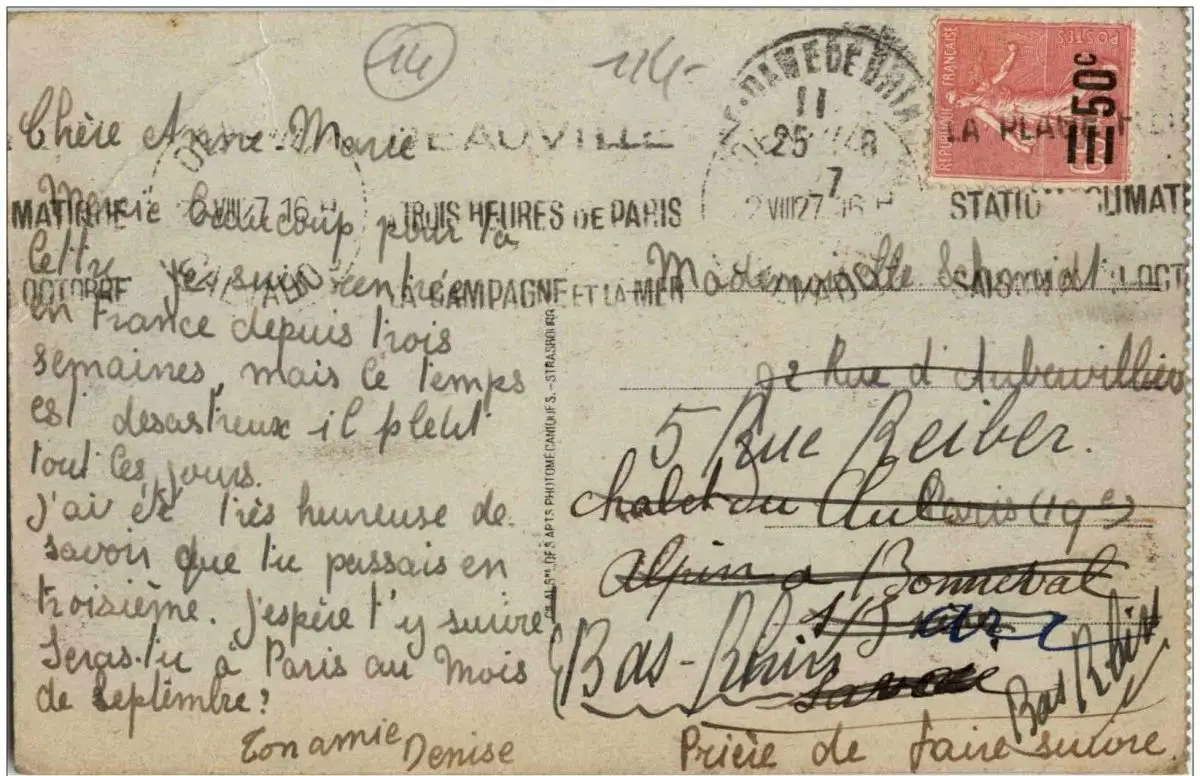 14
114-
Chère Anne-Marie
Merci beaucoup pour ta
lettre je suis rentrée
en France depuis trois
semaines, mais le temps
est desastreux il pleut
tout les jours.
J'ai été très heureuse de
savoir que tu passais en
troisième. J'espère t'y suivre
Seras-tu à Paris au Mois
de Septembre?
Ton amie Denise
DEAUVILLE
TROIS HEURES DE PARIS
LA CAMPAGNE ET LA MER
OCTOBRE
2 VIII 27 16 H
DAME DE
11
25
7
2 VIII 27 16 H
LA PLAGE
STATION CLIMAT
SAISON
OCT
REPUBLIQUE FRANÇAISE
POSTES
50c
DES ARTS PHOTOMÉCANIQUES. - STRASBOURG
Mademoiselle Schmidt
92 Rue d'Aubervilliers
5 Rue Reiber.
Paris (19e)
Chalet du Club
Alpin a Bonneval
s/ Arc
Bas-Rhin
Savoie
Bas Rhin
Prière de faire suivre